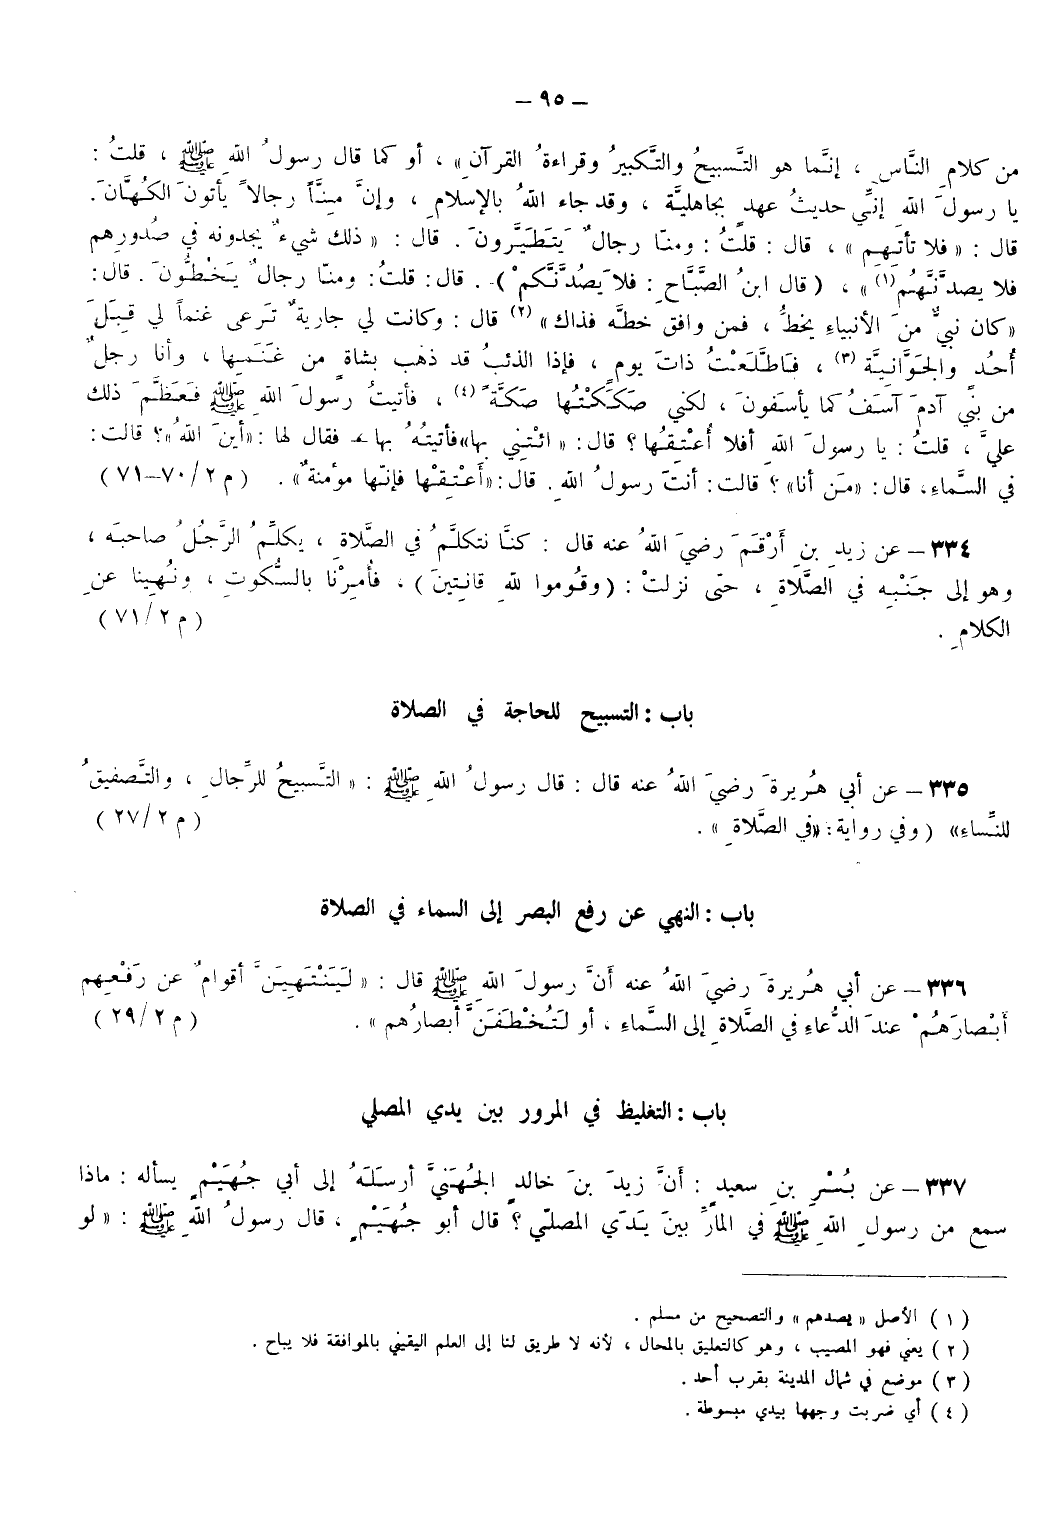 – ٩٥ –
من كلامِ النَّاسِ ، إنَّما هو التَّسبيحُ والتَّكبيرُ وقراءةُ القرآن» ، أو كما قال رسولُ اللهِ ﷺ ، قلتُ :
يا رسولَ اللهِ إنِّي حديثُ عهدٍ بجاهليَّة ، وقد جاء اللهُ بالإسلامِ ، وإنَّ مِنَّا رجالاً يأتونَ الكُهَّانَ .
قال : « فلا تأتهم » ، قال : قلتُ : ومنّا رجالٌ يَتَطَيَّرونَ . قال : « ذلك شيءٌ يجدونه في صُدورِهم
فلا يصدَّنَّهُم(١) » ، ( قال ابنُ الصَّبَّاحِ : فلا يَصُدَّنَّكمْ ) . قال : قلتُ : ومنّا رجالٌ يَخْطُّونَ . قال :
«كان نبيٌّ منَ الأنبياءِ يخطُّ ، فمن وافق خطَّه فذاك» (٢) قال : وكانت لي جاريةٌ تَرعى غنماً لي قِبَلَ
أُحُد والجَوَّانيَّة (٣) ، فَاطَّلَعْتُ ذاتَ يومٍ ، فإذا الذئبُ قد ذهب بشاةٍ من غَنَمِها ، وأنا رجلٌ
من بني آدمَ آسَفُ كما يأسَفونَ ، لكني صَكَكْتُها صَكَّةً (٤) ، فأتيتُ رسولَ اللهِ ﷺ فَعَظَّمَ ذلك
عليَّ ، قلتُ : يا رسولَ اللهِ أفلا أُعْتِقُها ؟ قال : « ائْتِني بها» فأتيتُهُ بها ، فقال لها : «أينَ اللهُ» ؟ قالت :
في السَّماء، قال : «مَن أنا» ؟ قالت : أنتَ رسولُ اللهِ . قال : «أَعْتِقْها فإنَّها مؤمنةٌ» . ( م ٢/٧٠–٧١ )
٣٣٤ – عن زيدِ بنِ أَرْقَمَ رضيَ اللهُ عنه قال : كنَّا نتكلَّمُ في الصَّلاةِ ، يكلِّمُ الرَّجُلُ صاحبَه ،
وهو إلى جَنْبِه في الصَّلاةِ ، حتّى نزلتْ : ( وقُوموا للهِ قانتِينَ ) ، فأُمِرْنا بالسُّكوتِ ، ونُهينا عنِ
الكلامِ . ( م ٢/٧١ )
باب : التسبيح للحاجة في الصلاة
٣٣٥ – عن أبي هُريرةَ رضيَ اللهُ عنه قال : قال رسولُ اللهِ ﷺ : « التَّسبيحُ للرِّجالِ ، والتَّصفيقُ
للنِّساء» ( وفي رواية : «في الصَّلاةِ » . ( م ٢/٢٧ )
باب : النهي عن رفع البصر إلى السماء في الصلاة
٣٣٦ – عن أبي هُريرةَ رضيَ اللهُ عنه أنَّ رسولَ اللهِ ﷺ قال : « لَيَنْتَهِيَنَّ أقوامٌ عن رَفْعِهم
أَبْصارَهُمْ عندَ الدُّعاءِ في الصَّلاةِ إلى السَّماءِ ، أو لَتُخْطَفَنَّ أبصارُهم » . ( م ٢/٢٩ )
باب : التغليظ في المرور بين يدي المصلي
٣٣٧ – عن بُسْرِ بنِ سعيدٍ : أنَّ زيدَ بنَ خالدٍ الجُهَنيَّ أرسَلَهُ إلى أبي جُهَيْمٍ يسأله : ماذا
سمع من رسولِ اللهِ ﷺ في المارِّ بينَ يَدَي المصلّي ؟ قال أبو جُهَيْمٍ ، قال رسولُ اللهِ ﷺ : « لو
( ١ ) الأصل « يصدهم » والتصحيح من مسلم .
( ٢ ) يعني فهو المصيب ، وهو كالتعليق بالمحال ، لأنه لا طريق لنا إلى العلم اليقيني بالموافقة فلا يباح .
( ٣ ) موضع في شمال المدينة بقرب أحد .
( ٤ ) أي ضربت وجهها بيدي مبسوطة .